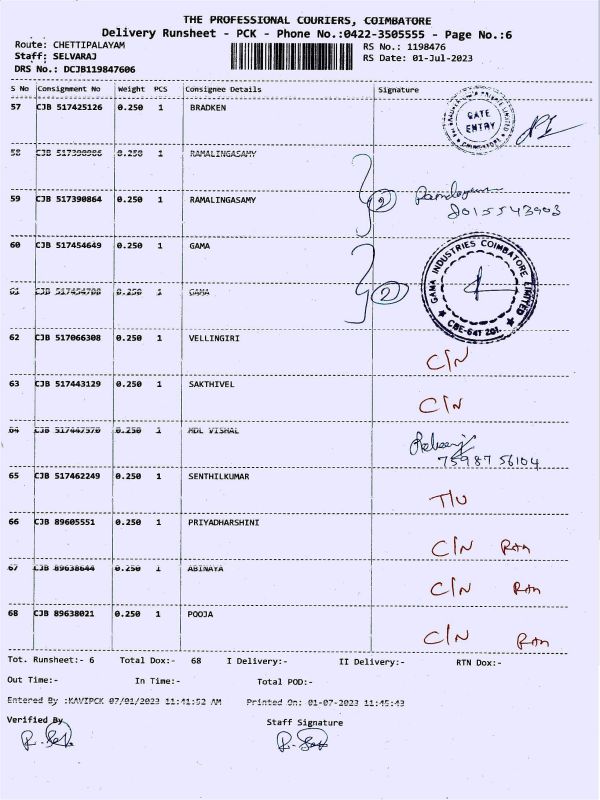 THE PROFESSIONAL COURIERS, COIMBATORE
Delivery Runsheet - PCK - Phone No.:0422-3505555 - Page No.:6
Route: CHETTIPALAYAM RS No.: 1198476
Staff: SELVARAJ RS Date: 01-Jul-2023
DRS No.: DCJB119847606
S No Consignment No Weight PCS Consignee Details Signature
57 CJB 517425126 0.250 1 BRADKEN
GATE ENTRY
58 0.250 1 RAMALINGASAMY
59 CJB 517390864 0.250 1 RAMALINGASAMY 2
8015543903
60 CJB 517454649 0.250 1 GAMA
GANA INDUSTRIES COIMBATORE LIMITED
CBE-641 201.
61 CJB 517454788 0.250 1 GAMA 2
62 CJB 517066308 0.250 1 VELLINGIRI C/N
63 CJB 517443129 0.250 1 SAKTHIVEL C/N
64 CJB 517447570 0.250 1 MDL VISHAL
75987 56104
65 CJB 517462249 0.250 1 SENTHILKUMAR T/U
66 CJB 89605551 0.250 1 PRIYADHARSHINI C/N
67 CJB 89638644 0.250 1 ABINAYA C/N
68 CJB 89638021 0.250 1 POOJA C/N
Tot. Runsheet:- 6 Total Dox:- 68 I Delivery:- II Delivery:- RTN Dox:-
Out Time:- In Time:- Total POD:-
Entered By :KAVIPCK 07/01/2023 11:41:52 AM Printed On: 01-07-2023 11:45:43
Verified By Staff Signature